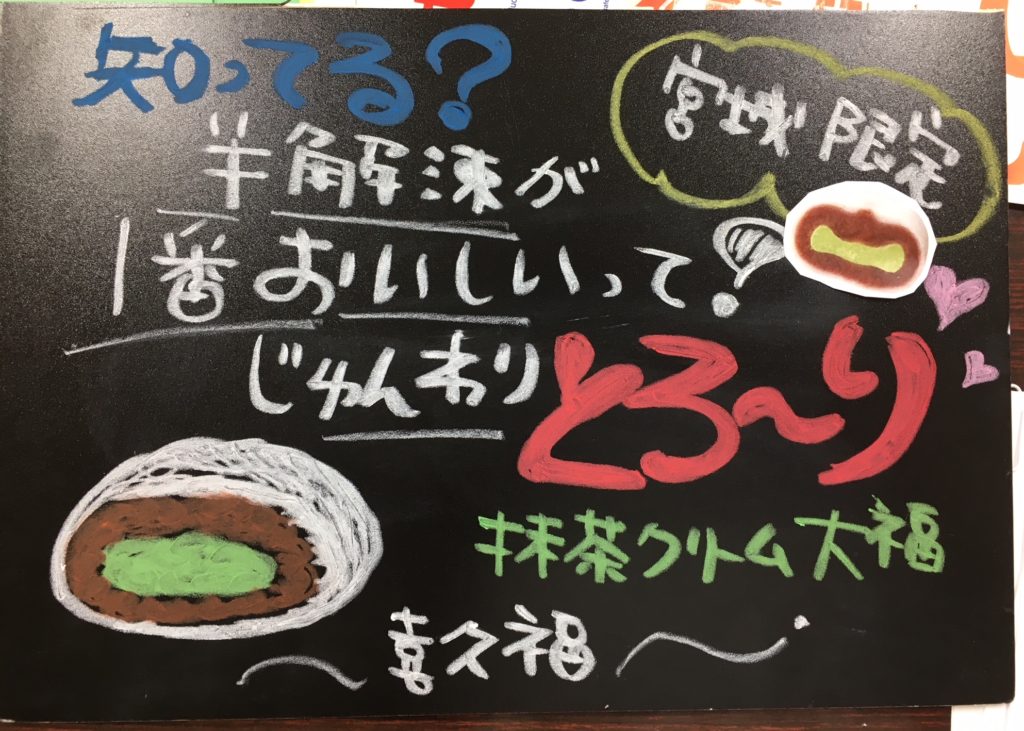 知ってる?
宮城限定
半解凍が
1番おいしいって?
じゅんわり
とろ〜り
抹茶クリーム大福
〜喜久福〜